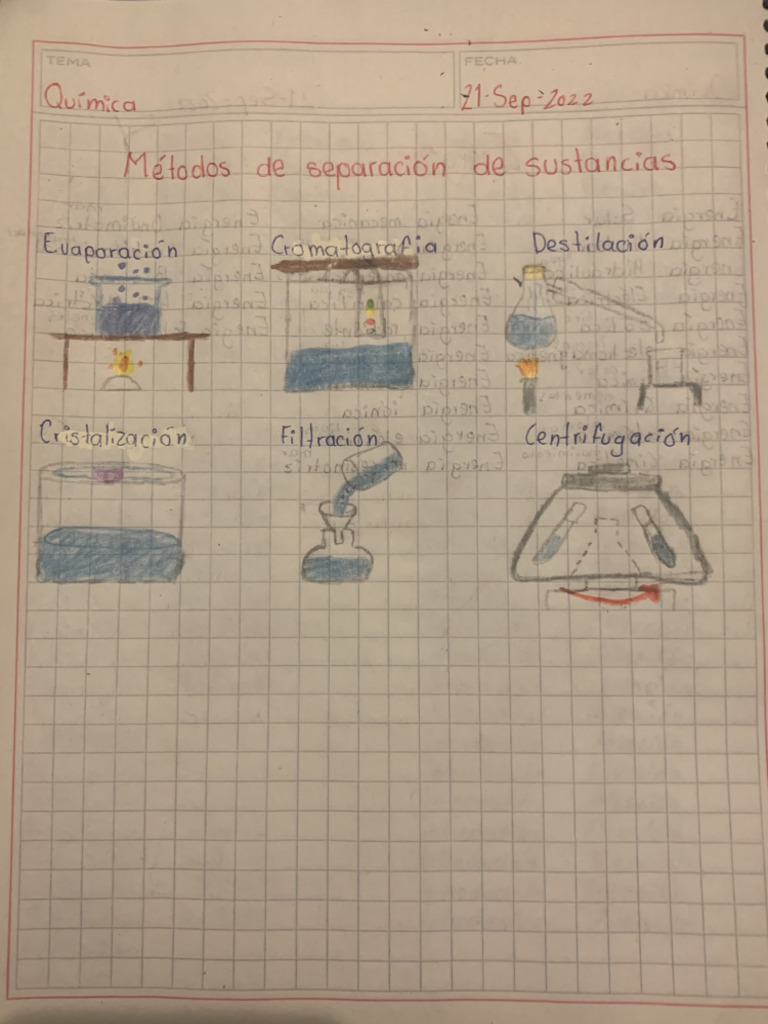 TEMA
FECHA
Química
21-Sep-2022
Métodos de separación de sustancias
Evaporación
Cromatografia
Destilación
Cristalización
Filtración
Centrifugación